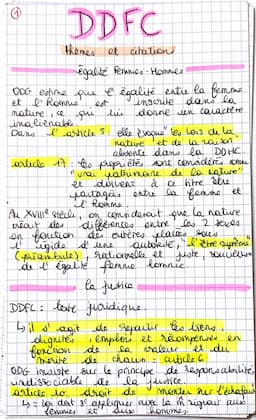 1
DDFC
thèmes et citation
égalité Femmes-Hommes
ODG estime que l'égalité entre la femme
et l'Homme est inscrite dans la
nature, ce qui lui donne un caractère
inaliénable
Dans l'article 5: elle évoque les lois de la
nature et de la raison
absente dans la DDHC
article 17: les propriétés sont considérés comme
"vrai patrimoine de la nature"
et doivent à ce titre être
partagées entre la femme et
l'Homme
Au XVIIIe siècle, on considérait que la nature
créait des différences entre les 2 sexes
en fonction des entières placés sous
l'égide d'une autorité, "l'être suprême"
(préambule), rationnelle et juste, soucieuse
de l'égalité femme homme.
la justice
DDFC: texte juridique
↳ il s'agit de répartir les biens,
dignités, emplois et récompenses en
fonction de la valeur et du
mérite de chacun - article 6
ODG insiste sur le principe de responsabilité
indissociable de la justice.
article le droit de monter sur l'échafaud
↳ la loi doit s'appliquer avec la même rigueur aux
femmes et aux hommes.